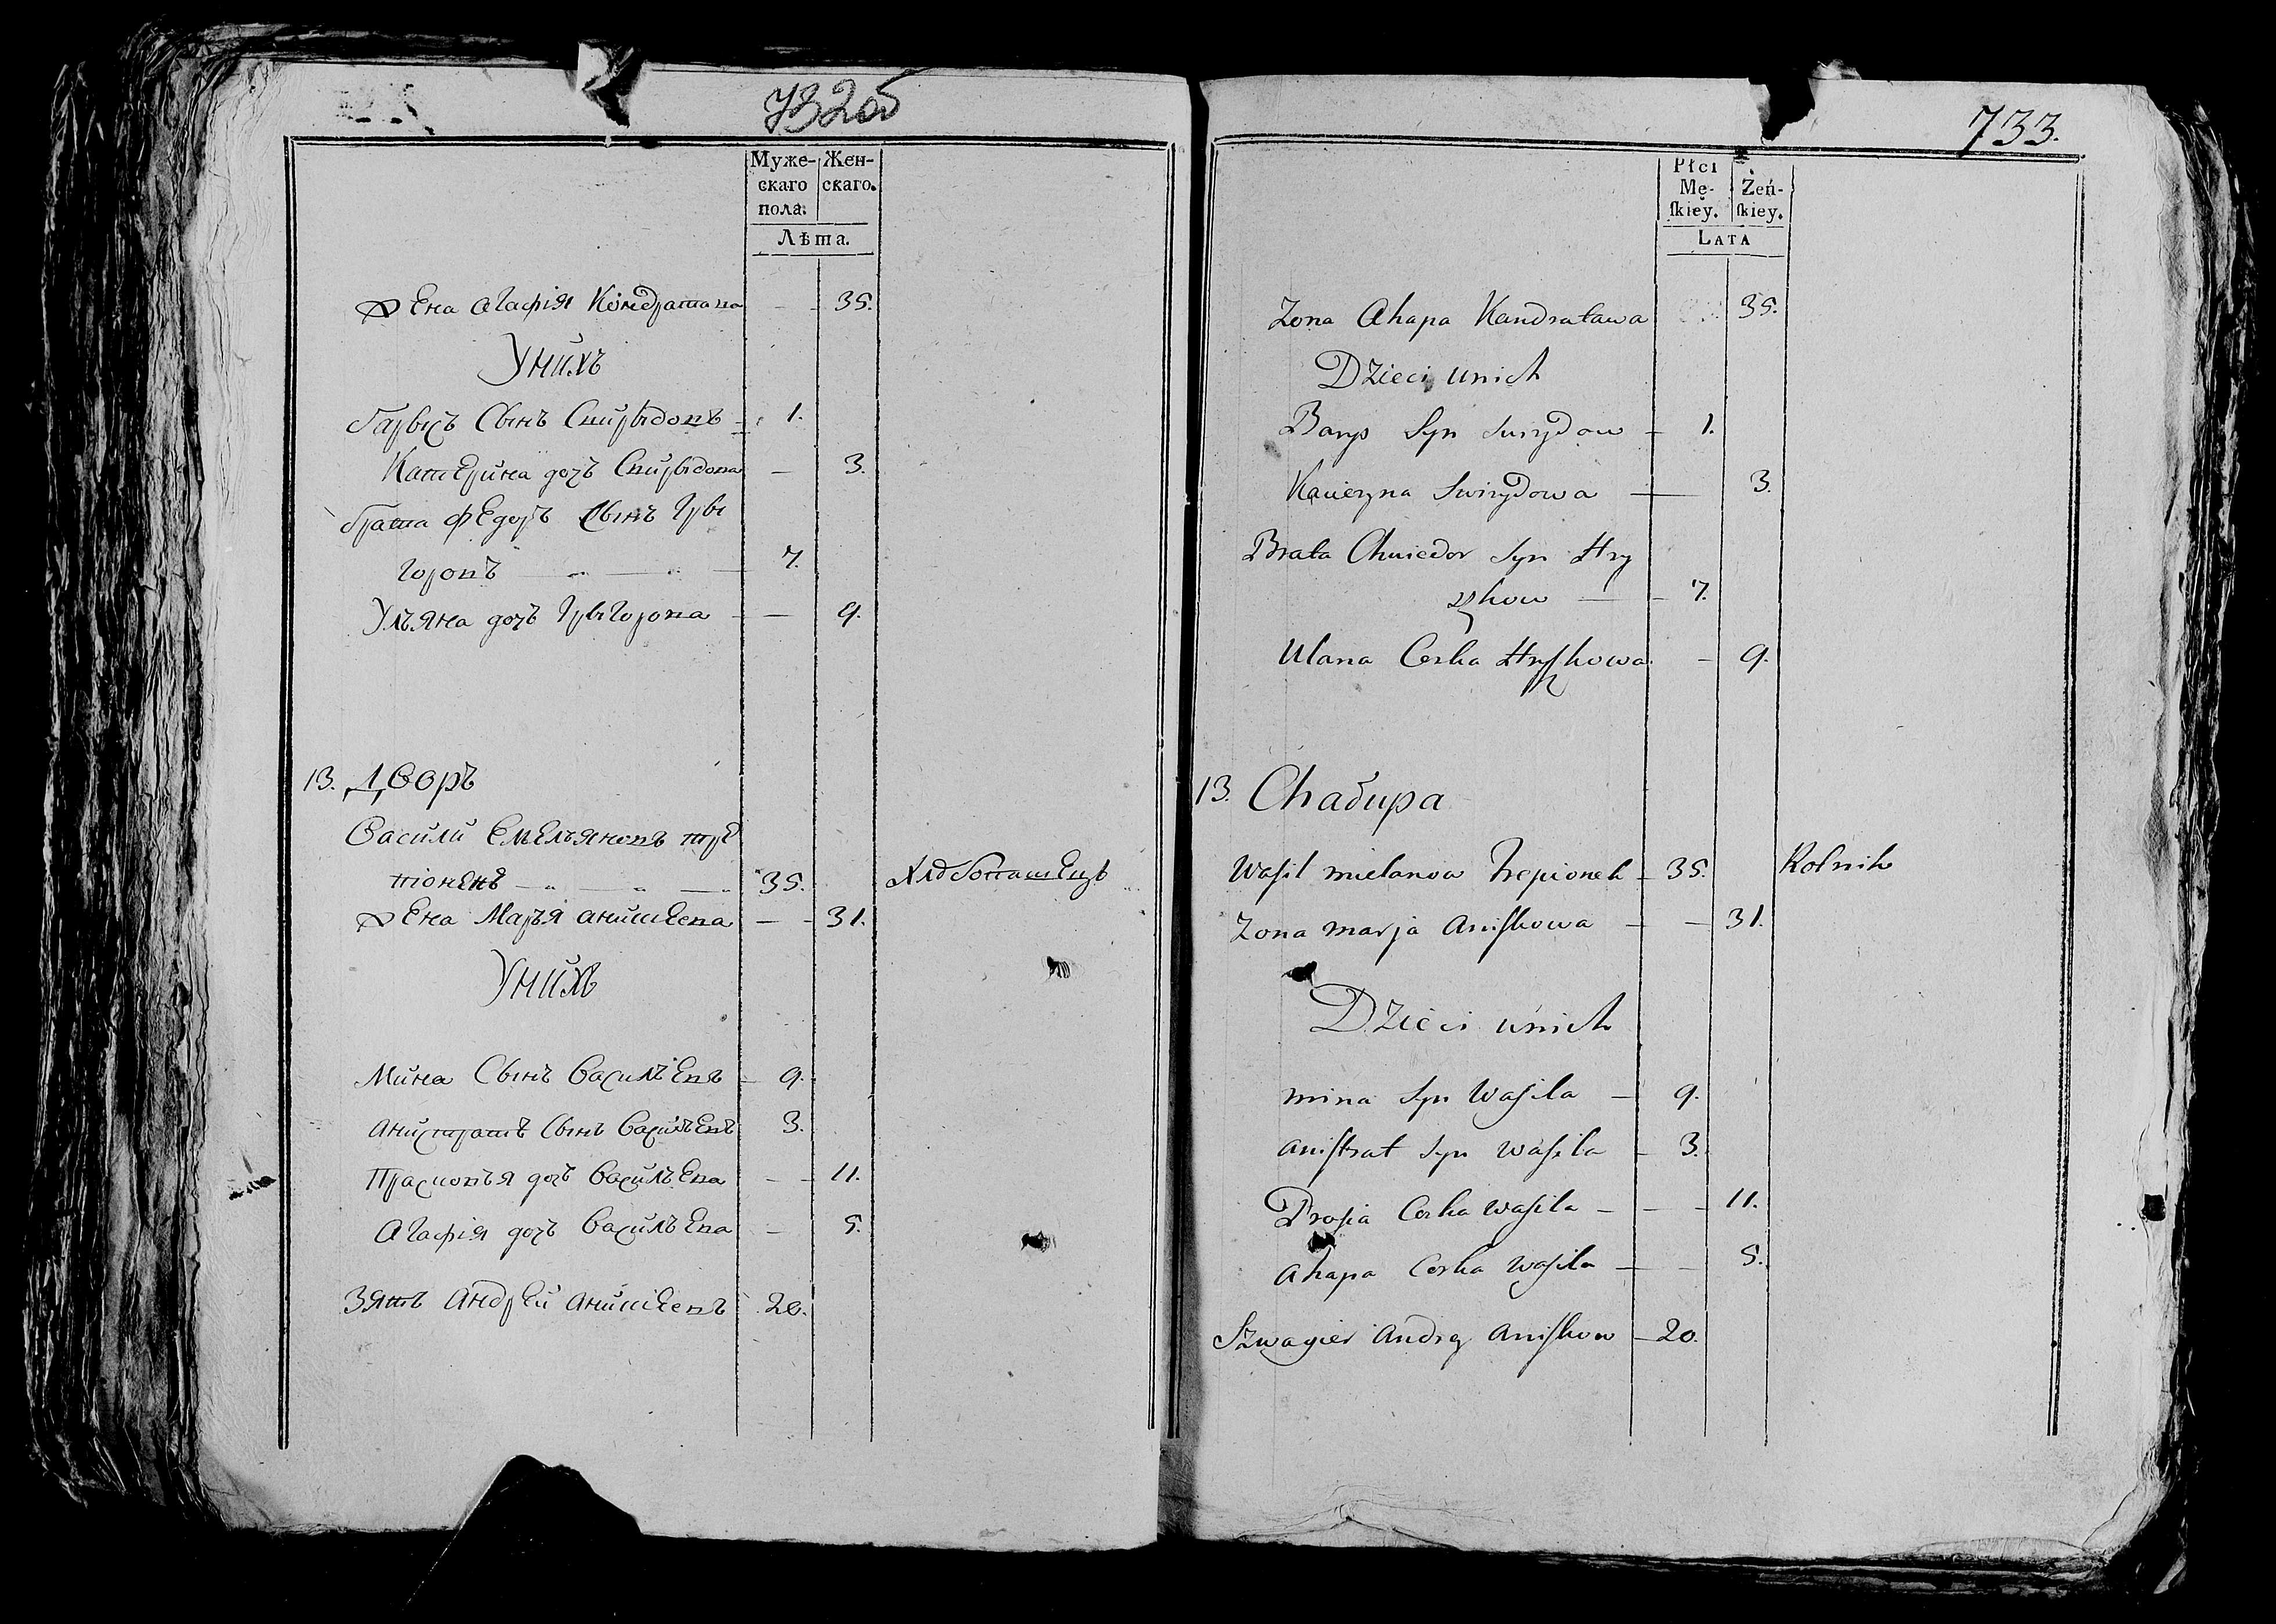 732об
Муже-
скаго
пола.
Жен-
скаго.
Лѣта.
жена Агафія Кондратава 35.
У нихъ
Барысъ Сынъ Спирыдовъ 1.
Катерина дочъ Спирыдова 3.
брата Федоръ Сынъ Гры
горовъ 7.
Ульяна дочъ Грыгорова 9.
13. Дворъ
Васили Емельяновъ тре
піонекъ 35. Хлебопашецъ
жена Марья анишкева 31.
У нихъ
Мина Сынъ Васильевъ 9.
анистратъ Сынъ Васильевъ 3.
Прасковья дочъ Васильева 11.
Агафія дочъ Васильева 5.
Зять Андрей анишкевъ 20.
733.
Płci
Mę-
skiey.
Żeń-
skiey.
LATA
Zona Ahapa Kandratawa 35.
Dzieci u nich
Barys Syn Swirydow 1.
Kacieryna Swirydowa 3.
Brata Chwiedor Syn Hry
szkow 7.
Ulana Corka Hryszkowa 9.
13. Chałupa
Wasil mielanow Trepionek 35. Rolnik
Zona marja Aniskowa 31.
Dzieci u nich
mina Syn Wasila 9.
anistrat Syn Wasila 3.
Prosia Corka Wasila 11.
ahapa Corka Wasila 5.
Szwagier Andrey Aniskow 20.